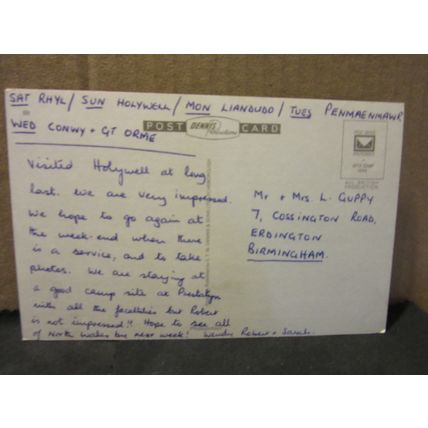 SAT RHYL / SUN HOLYWELL / MON LLANDUDO / TUES PENMAENMAWR
WED CONWY + GT ORME
POST DENNIS Productions CARD
Visited Holywell at long
last. We are very impressed.
We hope to go again at
the week-end when there
is a service, and to take
photos. We are staying at
a good camp site at Prestatyn
with all the facilities but Robert
is not impressed!! Hope to see all
of North Wales by next week! Wendy Robert + Sarah.
Mr + Mrs. L. GUPPY
7, COSSINGTON ROAD,
ERDINGTON
BIRMINGHAM.